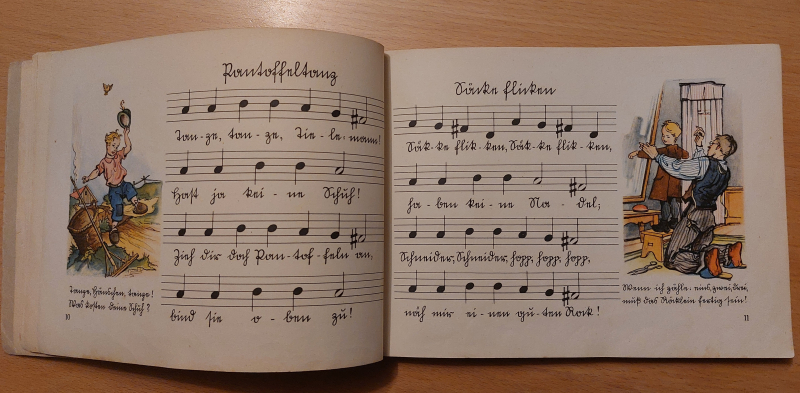 Pantoffeltanz
Tan-ze, tan-ze, Tie-le-mann!
Hast ja kei-ne Schuh!
Zieh dir doch Pan-tof-feln an,
bind sie o-ben zu!
Tanze, Hänschen, tanze!
Was kosten deine Schuh?
10
Säcke flicken
Säk-ke flik-ken, Säk-ke flik-ken,
ha-ben kei-ne Na-del;
Schneider, Schneider, hopp, hopp, hopp,
näh mir ei-nen gu-ten Rock!
Wenn ich zähle: eins, zwei, drei,
muß das Röcklein fertig sein!
11